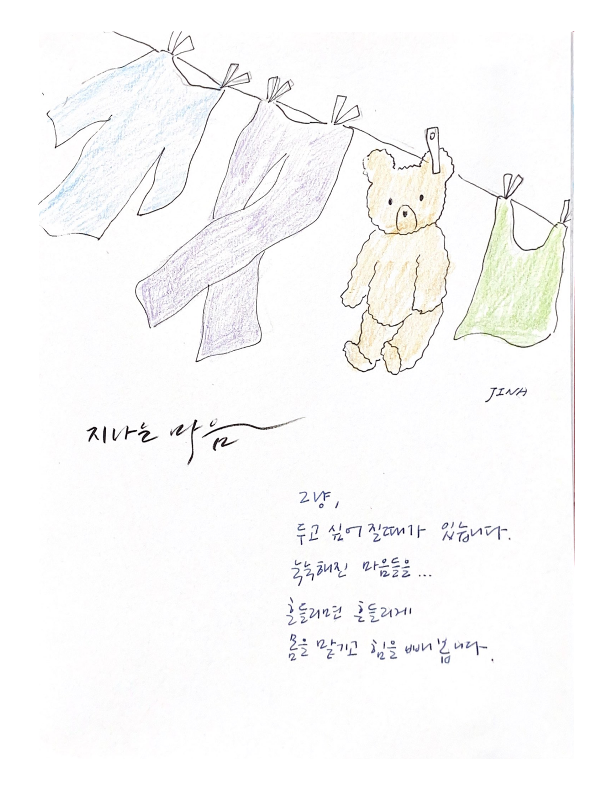 JINA
지나는 마음
그냥,
두고 싶어질때가 있습니다.
눅눅해진 마음들을...
흔들리면 흔들리게
몸을 맡기고 힘을 빼봅니다.